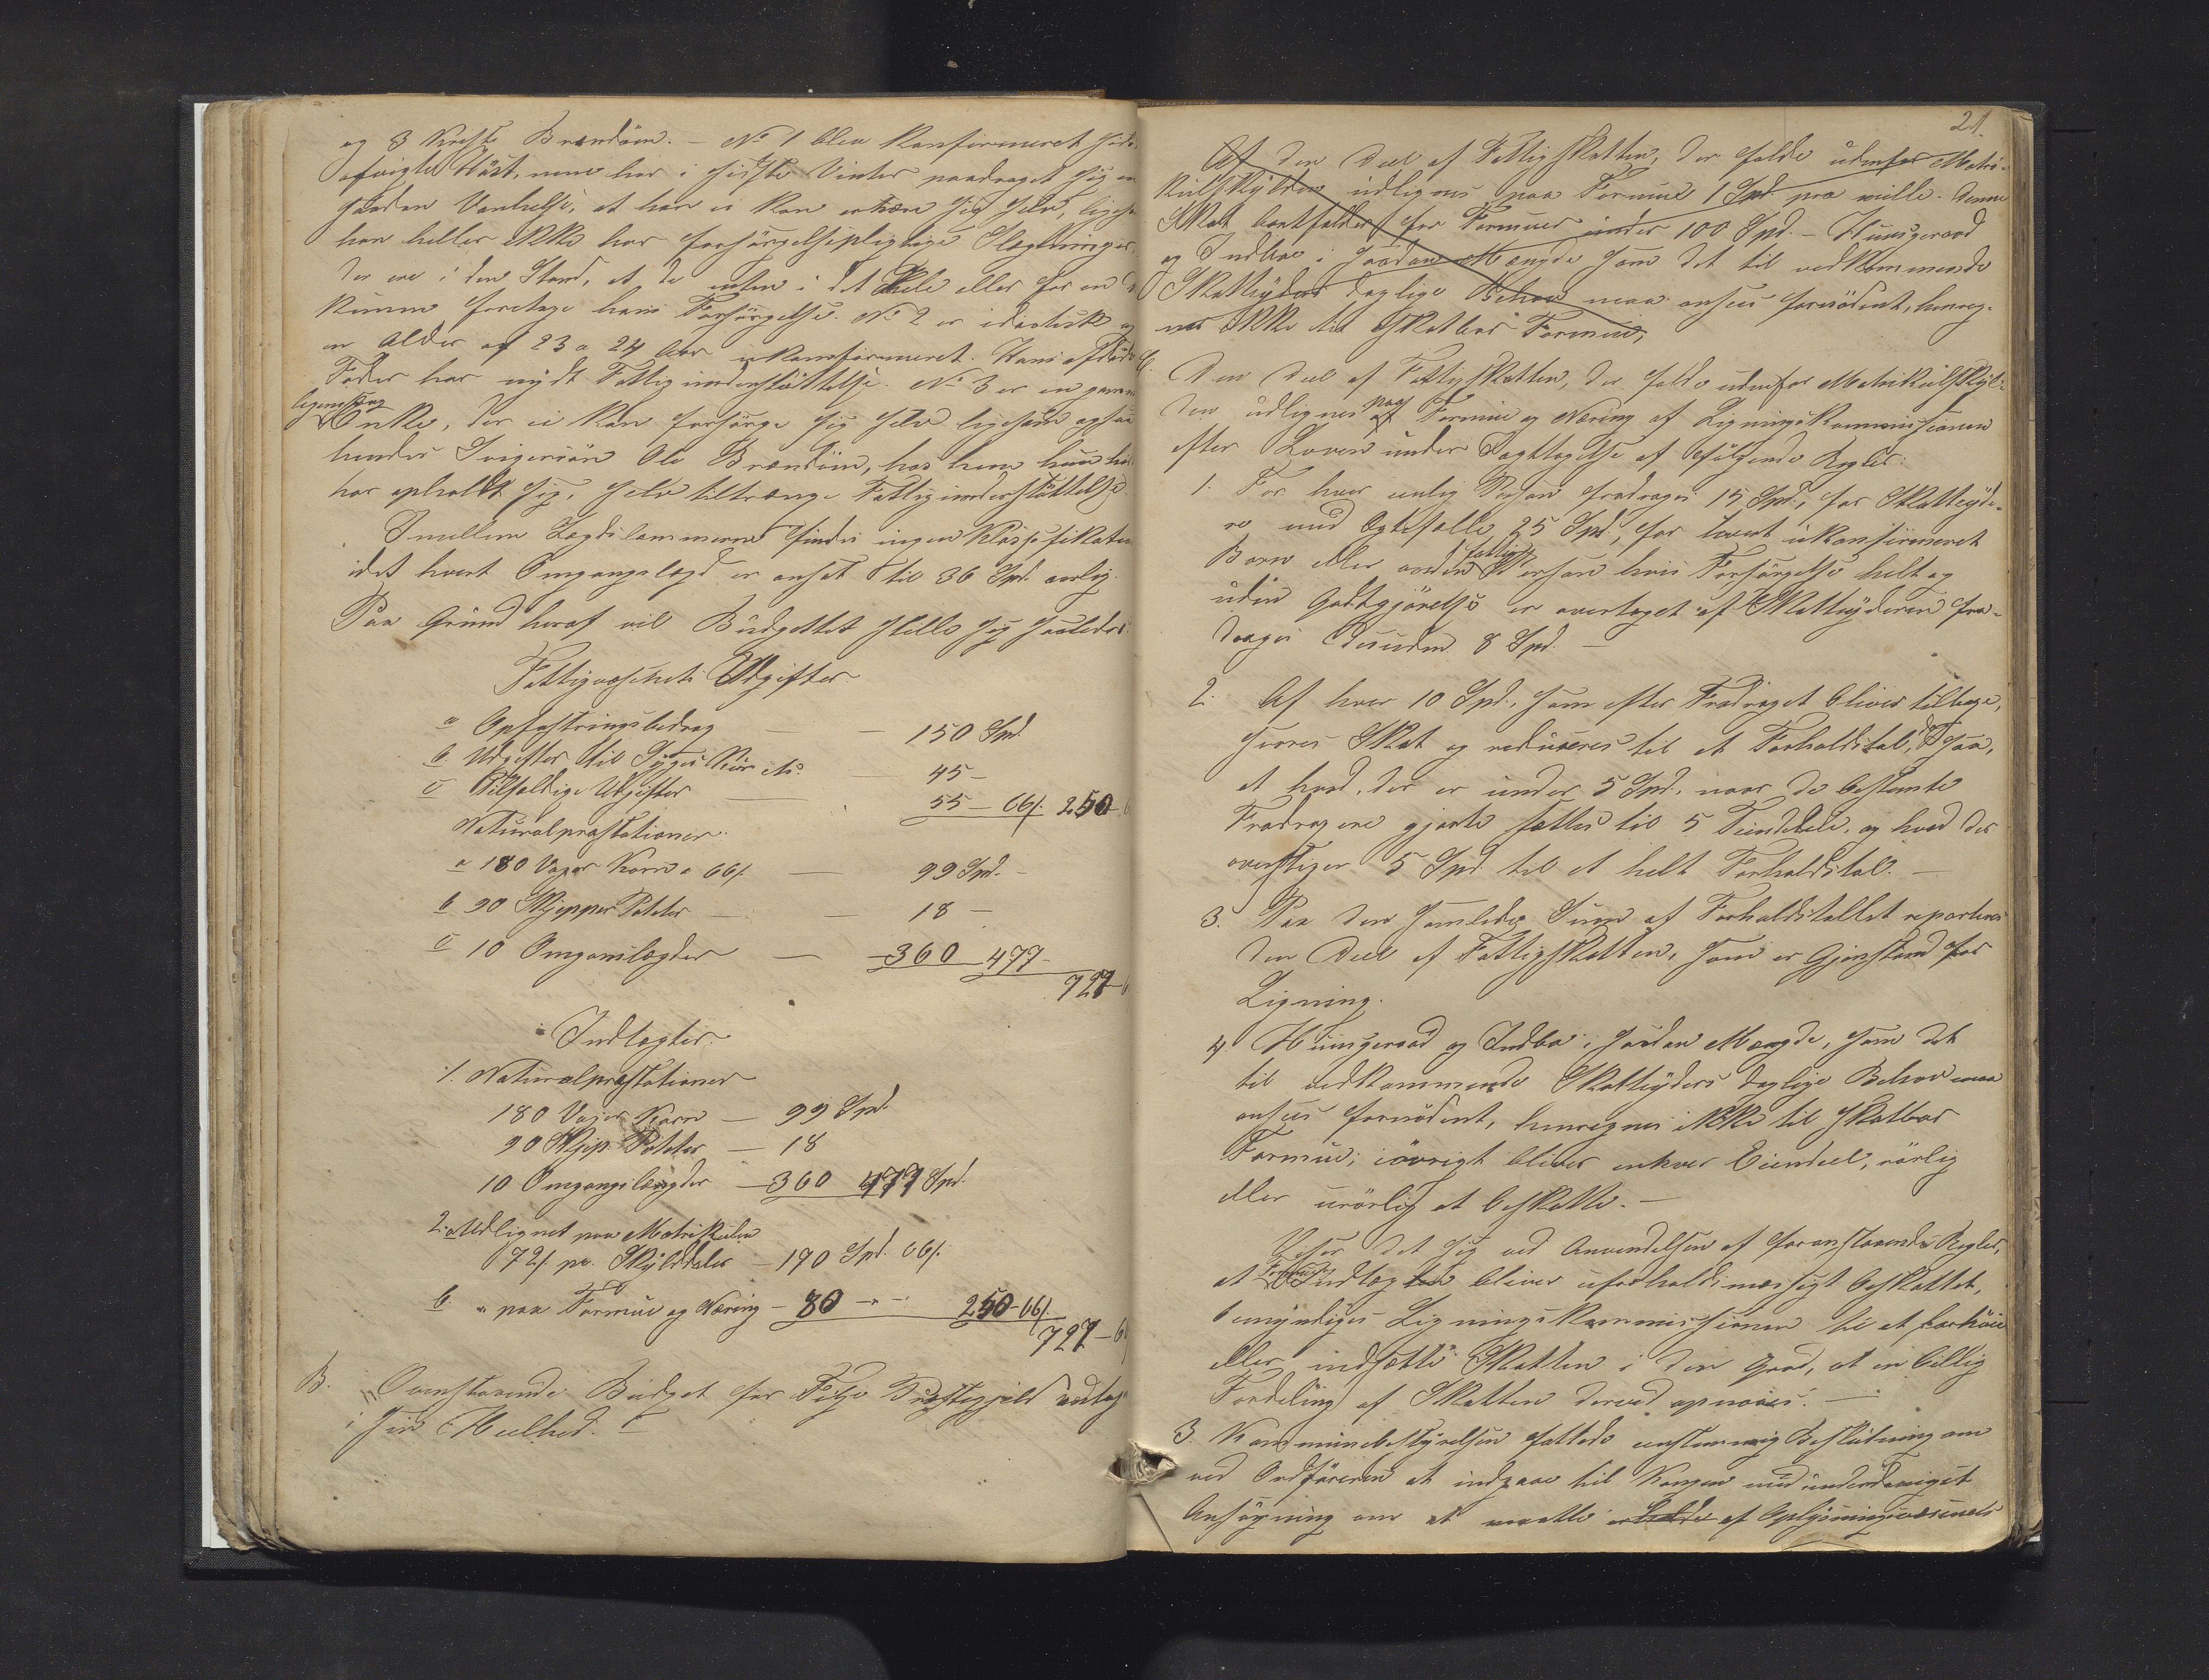 og 3 Kirsti Brændøm. – No 1 blev konfirmeret sidst
afvigte Høst, men har i sidste Vinter paadraget sig en
saadan Vanhelse, at han ei kan ernære sig selv, ligesom
han heller ikke har forsørgelsespligtige Slægtninger,
der ere i den Stand, at de enten i det Hele eller for en Deel
kunne foretage hans Forsørgelse. No 2 er idiotisk og
en Alder af 23 a 24 Aar ukonfirmeret. Hans afdøde
Fader har nydt Fattigunderstøttelse. No 3 er en gammel
legemssvag
Enke, der ei kan forsørge sig selv ligesom ogsaa
hendes Svigersøn Ole Brændøm, hos hvem hun hid
har opholdt sig, selv tiltrænger Fattigunderstøttelse.
Imellem Lægdslemmerne findes ingen Klassifikation
idet hvert Omgangslægd er ansat til 36 Spd. aarlig.
Paa Grund heraf vil Budgettet stille sig saaledes:
Fattigvæsenets Udgifter
a Opfostringsbidrag — — 150 Spd
b Udgifter til Syges Kur etc. — 45 –
c Tilfældige Udgifter — 55 – 66ſ. 250 – 6
Naturalpræstationer:
a 180 Voger Korn a 66ſ. — 99 Spd. –
b 90 Skjepper Poteter — — 18 –
c 10 Omganslægder — – 360 – 477 –
727 – 6
Indtægter.
1. Naturalpræstationer
180 Voger Korn — 99 Spd.
90 Skjep. Poteter — 18
10 Omgangslægder – 360 477 Spd.
2. a Udlignet paa Matrikulen
72ſ. pr. Skylddaler – 170 Spd. 66ſ.
b. " paa Formue og Næring – 80 – " – 250 – 66ſ.
727 – 6
B. Ovenstaaende Budget for Præstegjeld vedtages
i sin Heelhed. –
21.
Af den Deel af Fattigskatten, der falde udenfor Matri-
kulskylden udlignes paa Formue 1 Spd. pro mille. Denne
Skat bortfalder for Formuer under 100 Spd. – Huusgeraad
og Indboe i saadan Mængde som det til vedkommende
Skatteyders daglige Behov maa ansees fornødent, henreg-
nes ikke til skatbar Formue,
C. Den Deel af Fattigskatten, der falde udenfor Matrikulskyl-
den udlignes paa Formue og Næring af Ligningskommissionen
efter Loven under Iagttagelse af følgende Regler:
1. For hver enlig Person fradrages 15 Spd., for Skatteyde-
re med Egtefælle 25 Spd, for hvert ukonfirmeret
Barn eller anden fattig Person hvis Forsørgelse helt og
uden Godtgjørelse er overtaget af Skatteyderen fra-
drages desuden 8 Spd. –
2. Af hver 10 Spd., som efter Fradraget bliver tilbage,
svares Skat og reduceres til et Forholdstal, dog saa,
at hvad, der er under 5 Spd. naar de bestemte
Fradrag ere gjorte sættes til 5 Tiendedele, og hvad der
overstiger 5 Spd. til et helt Forholdstal. –
3. Paa den samlede Sum af Forholdstallet reparteres
den Deel af Fattigskatten, som er Gjenstand for
Ligning.
4 Huusgeraad og Indbo i saadan Mængde, som det
til vedkommende Skatteyders daglige Behov maa
ansees fornødent, henregnes ikke til skatbar
Formue; iøvrigt bliver enhver Eiendeel, rørlig
eller urørlig at beskatte. –
Viser det sig ved Anvendelsen af foranstaaende Regler,
at Indtægten bliver uforholdsmæssigt beskattet,
bemyndiges Ligningskommissionen til at forhøie
eller nedsætte Skatten i den Grad, at en billig
Fordeling af Skatten derved opnaaes. –
3. Kommunebestyrelsen fattede eenstemmig Beslutning om
ved Ordføreren at indgaae til Kongen med underdanigst
Ansøgning om at maatte erholde af Oplysningsvæsenets